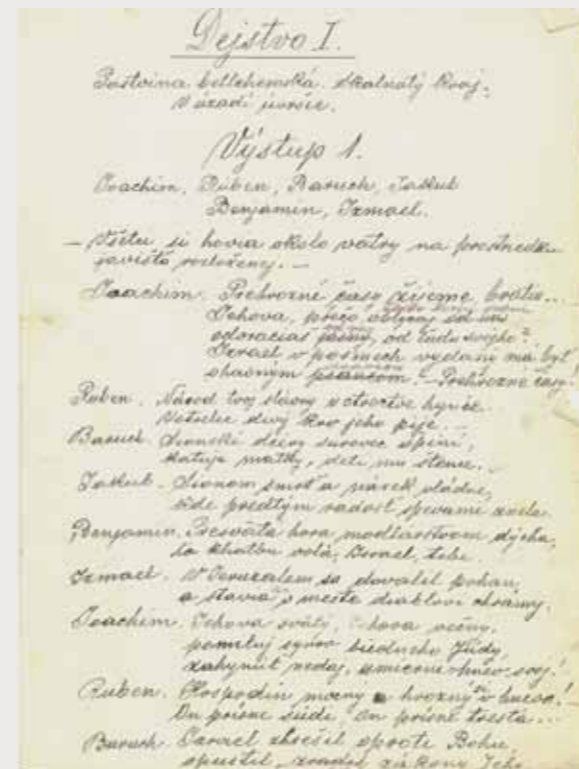 Dejstvo I.
Pastvina betlehemská. Skalnatý kraj.
V úzadí
Výstup 1.
Joachim, Ruben, Baruch, Jakub
Benjamin, Izmael.
— Všetci si hovia okolo vatry na prostriedku
javišťa rozloženej. —
Joachim. Prehrozné časy žijeme bratia...
Jehova, prečo obličaj od nás
odvraciaš jasný, od ľudu svojho?
Izrael v posmech vydaný má byť
ohavným Prehrozné časy!
Ruben. Národ tvoj slávny v otroctve hynie
divý krv jeho pije...
Baruch. Sionské dcéry surovec špiní,
katuje matky, deti mu stenie...
Jakub. Sionom smrť a nárek vládne,
kde predtým radosť spevami znela.
Benjamin. Presvätá hora modlárstvom dýcha,
volá, Izrael, tebe.
Izmael. V Jeruzalem sa dovalil pohan,
a stavia v meste diablovi chrámy.
Joachim. Jehova svätý, Jehova večný,
pomiluj synov biedneho Júdy,
zahynúť nedaj, umierni hnev svoj!
Ruben. Hospodin mocný a hrozný v hneve!
On prísne súdi, on prísne tresta...
Baruch. Izrael zhrešil oproti Bohu,
opustil, zradil zákony Jeho